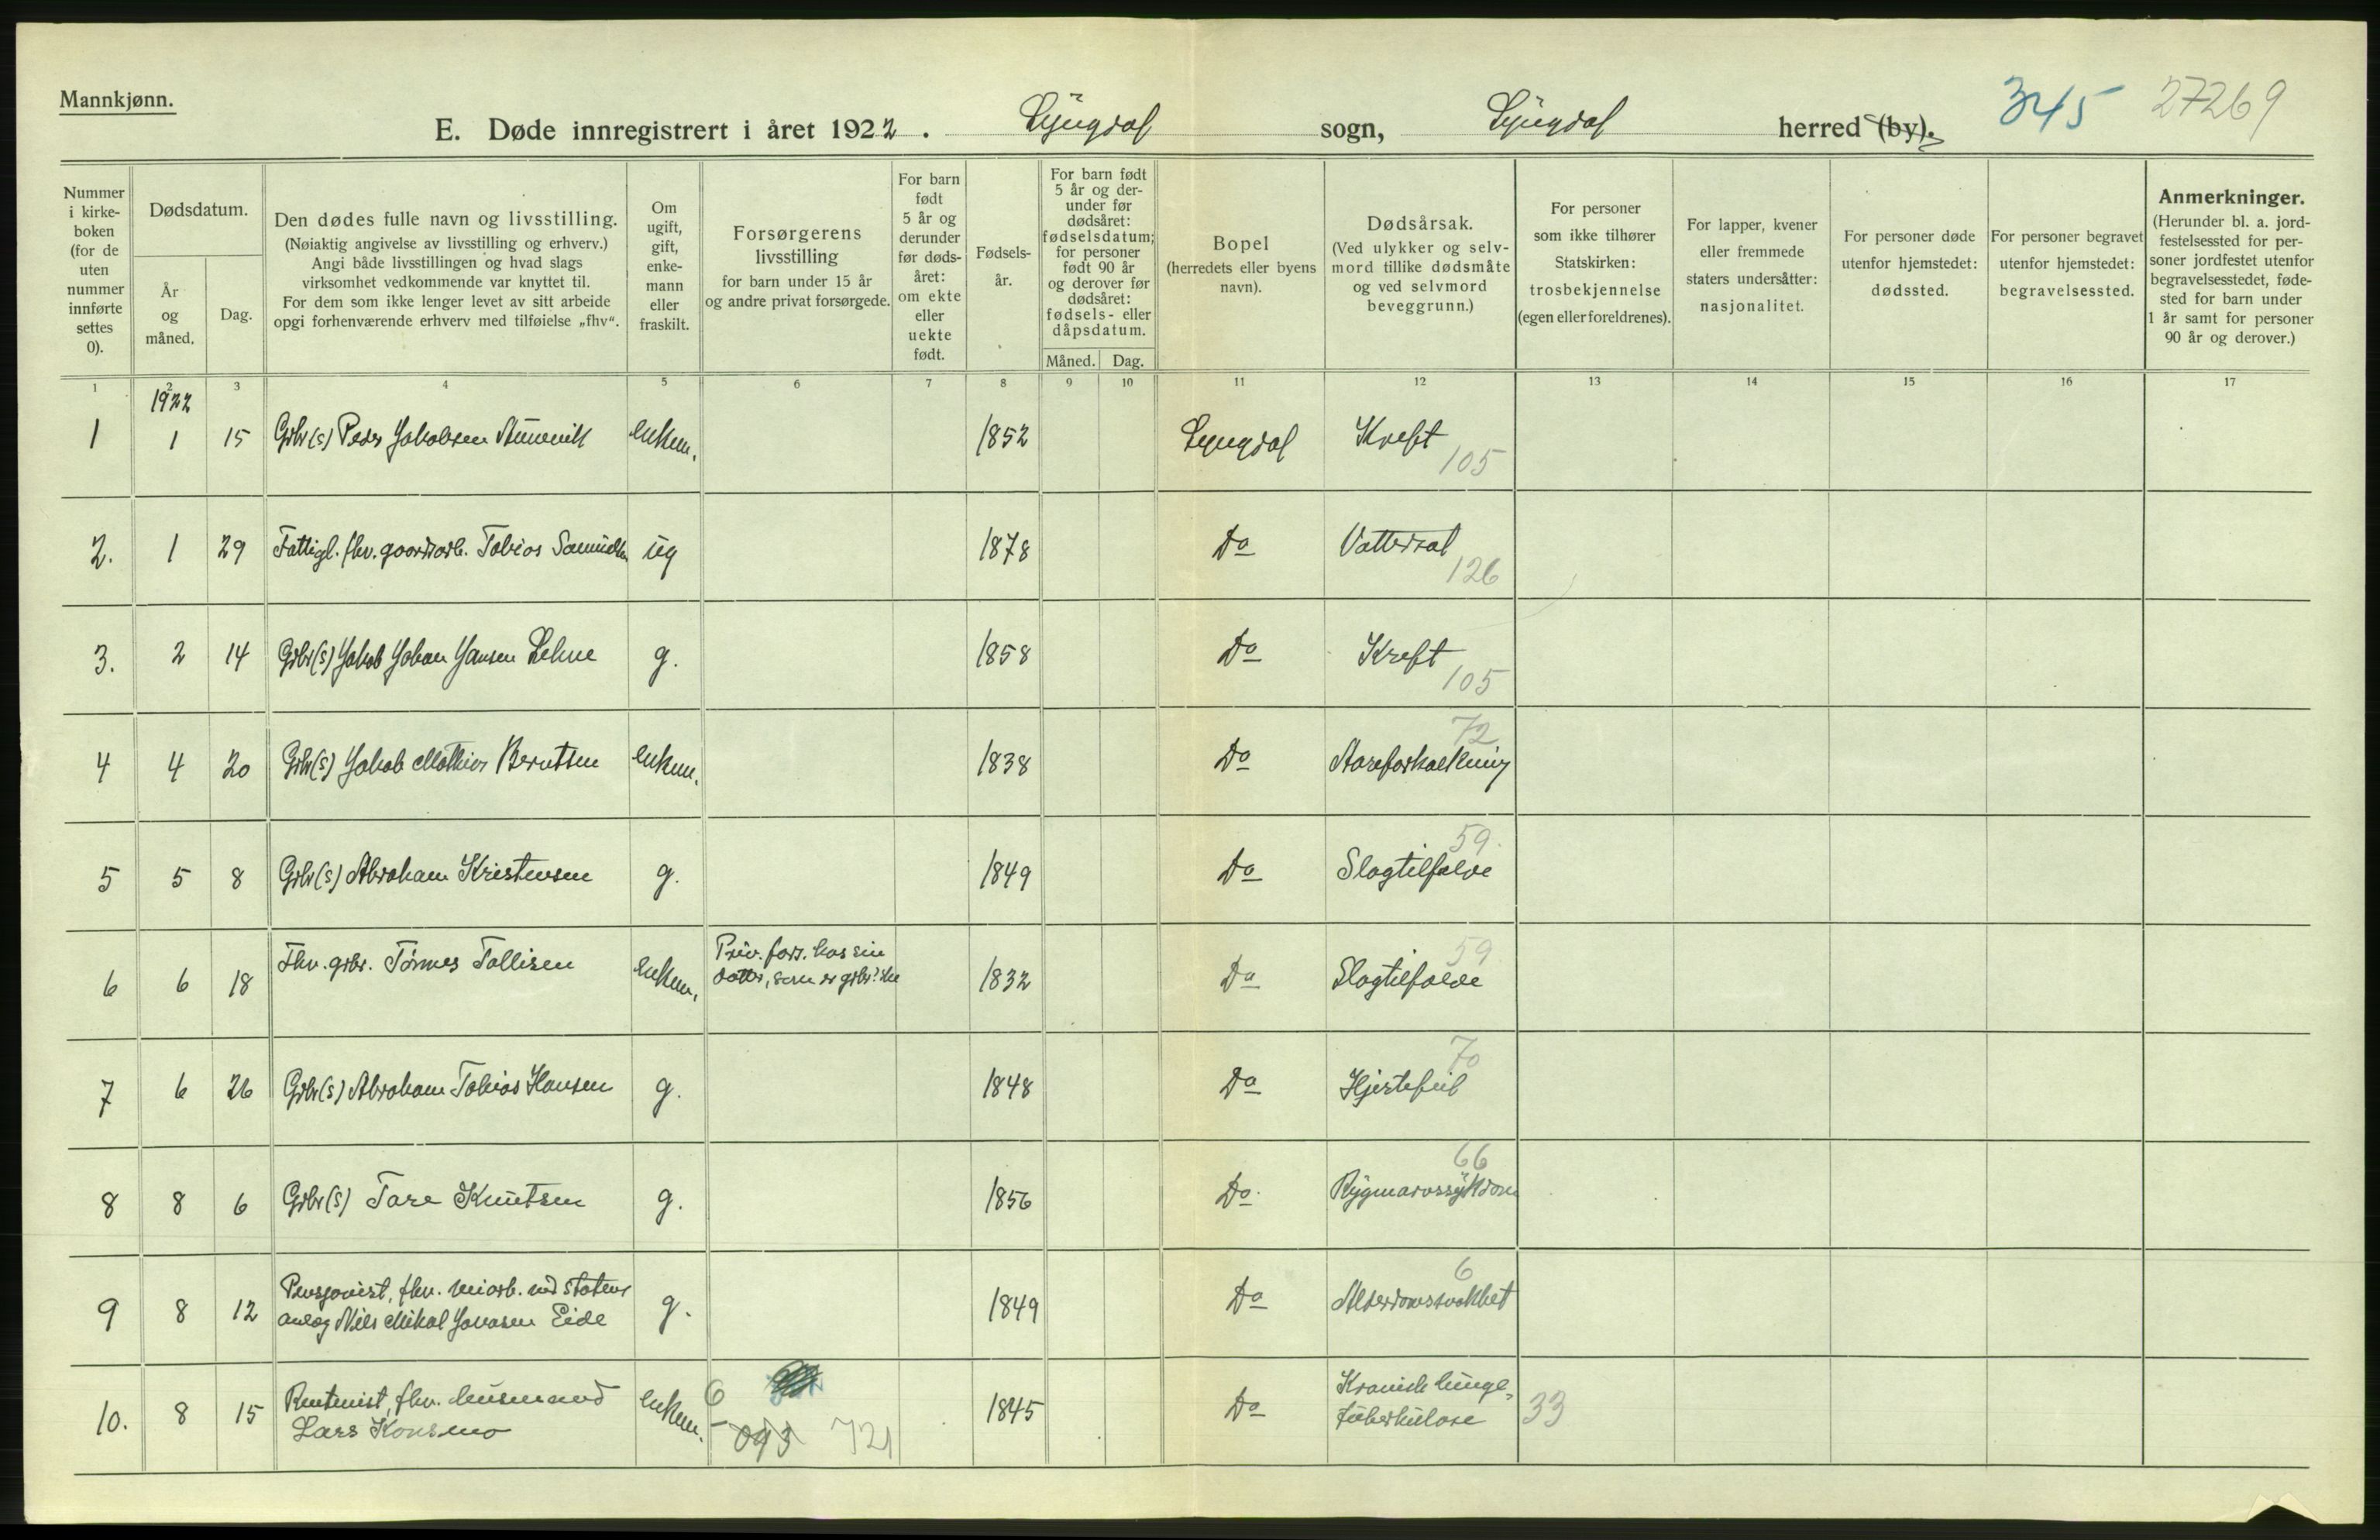 Mannkjønn.
E. Døde innregistrert i året 1922. Lyngdal sogn, Lyngdal herred (by). 345 27269
Nummer i kirke-boken (for de uten nummer innførte settes 0).
Dødsdatum.
År og måned.
Dag.
Den dødes fulle navn og livsstilling.
(Nøiaktig angivelse av livsstilling og erhverv.)
Angi både livsstillingen og hvad slags
virksomhet vedkommende var knyttet til.
For dem som ikke lenger levet av sitt arbeide
opgi forhenværende erhverv med tilføielse „fhv“.
Om ugift, gift, enke-mann eller fraskilt.
Forsørgerens livsstilling
for barn under 15 år
og andre privat forsørgede.
For barn født 5 år og derunder før døds-året: om ekte eller uekte født.
Fødsels-år.
For barn født 5 år og der-under før dødsåret: fødselsdatum; for personer født 90 år og derover før dødsåret: fødsels- eller dåpsdatum.
Måned. Dag.
Bopel
(herredets eller byens navn).
Dødsårsak.
(Ved ulykker og selv-mord tillike dødsmåte og ved selvmord beveggrunn.)
For personer som ikke tilhører Statskirken: trosbekjennelse (egen eller foreldrenes).
For lapper, kvener eller fremmede staters undersåtter: nasjonalitet.
For personer døde utenfor hjemstedet: dødssted.
For personer begravet utenfor hjemstedet: begravelsessted.
Anmerkninger.
(Herunder bl. a. jord-festelsessted for per-soner jordfestet utenfor begravelsesstedet, føde-sted for barn under 1 år samt for personer 90 år og derover.)
1 2 3 4 5 6 7 8 9 10 11 12 13 14 15 16 17
1922
1 1 15 Grbr(s) Peder Jakobsen enkem. 1852 Lyngdal Kreft 105
2. 1 29 Fattigl. fhv. gaardsarb. Tobias Samuelsen ug 1878 Do Vattersot 126
3. 2 14 Grbr(s) Jakob Johan Jansen Lehne g. 1858 Do Kreft 105
4 4 20 Grbr(s) Jakob Mathias Berntsen enkem. 1838 Do Aareforkalkning 72
5 5 8 Grbr(s) Abraham Kristensen g. 1849 Do Slagtilfælde 59.
6 6 18 Fhv. grbr. Tønnes Tollisen enkem. Priv. fors. hos sin
datter, som er 1832 Do Slagtilfælde 59
7 6 26 Grbr(s) Abraham Tobias Hansen g. 1848 Do Hjertefeil 70
8 8 6 Grbr(s) Tore Knutsen g. 1856 Do. Rygmarvssykdom 66
9 8 12 Pensjonist, fhv. veiarb. ved statens
anlæg Nils Mikal Jonasen Eide g. 1849 Do Alderdomssvakhet 6
10. 8 15 Rentenist, fhv. husmand
Lars Konsmo enkem. 6 721 1845 Do Kronisk lunge-
tuberkulose 33